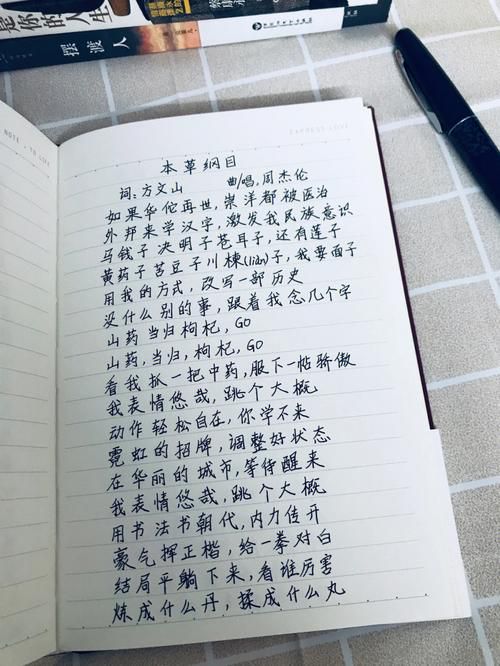 是你的人生
摆渡人
NOTE · TO LOVE
EXPRESS LOVE
本草纲目
词:方文山 曲/唱:周杰伦
如果华佗再世,崇洋都被医治
外邦来学汉字,激发我民族意识
马钱子 决明子 苍耳子,还有莲子
黄药子 苦豆子 川楝(liàn)子,我要面子
用我的方式,改写一部历史
没什么别的事,跟着我念几个字
山药 当归 枸杞,GO
山药,当归,枸杞,GO
看我抓一把中药,服下一帖骄傲
我表情悠哉,跳个大概
动作轻松自在,你学不来
霓虹的招牌,调整好状态
在华丽的城市,等待醒来
我表情悠哉,跳个大概
用书法书朝代,内力传开
豪气挥正楷,给一拳对白
结局平躺下来,看谁厉害
炼成什么丹,揉成什么丸